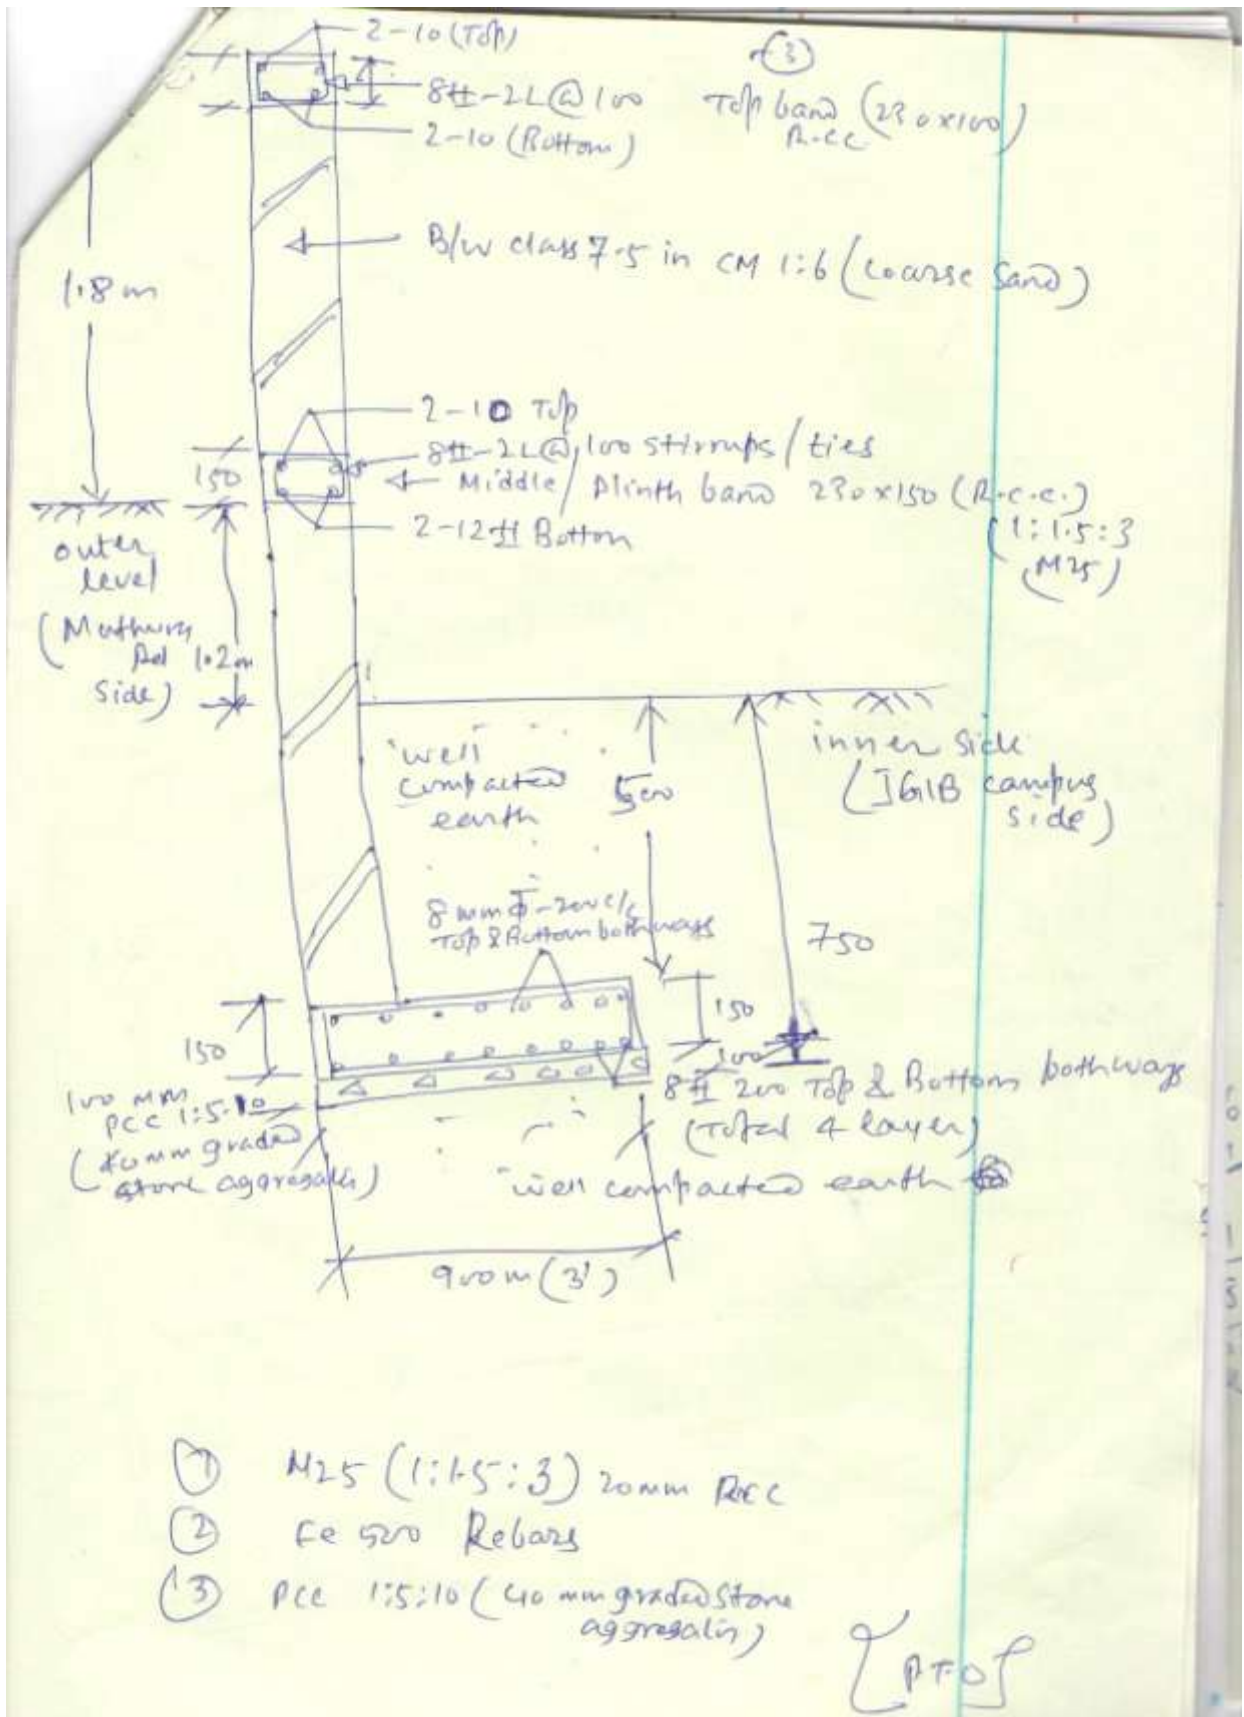 2-10 (Top)
3
8#-2L@100
Top band (230x100)
R.C.C.
2-10 (Bottom)
B/W class 7.5 in CM 1:6 (coarse sand)
1.8 m
2-10 Top
8#-2L@100 stirrups/ties
150
Middle/Plinth band 230x150 (R.C.C.)
2-12# Bottom
(1:1.5:3
(M25)
outer
level
(Mathura
Rd
side)
1.2m
well
compacted
earth
500
inner side
(IGIB campus
side)
8mm Φ-200 c/c
Top & Bottom bothways
750
150
150
100
100 mm
PCC 1:5:10
(40mm graded
stone aggregates)
8# 200 Top & Bottom bothways
(Total 4 layer)
well compacted earth
900m (3')
1 M25 (1:1.5:3) 20mm RCC
2 Fe 500 Rebars
3 PCC 1:5:10 (40 mm graded stone
aggregates)
{PTO}